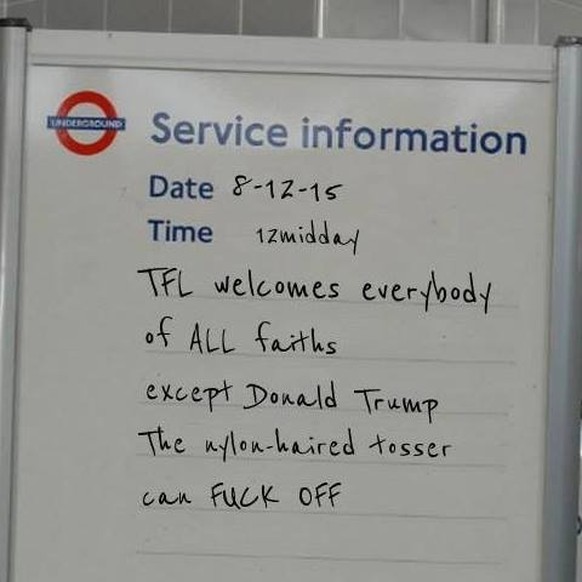 UNDERGROUND
Service information
Date 8-12-15
Time 12midday
TFL welcomes everybody
of ALL faiths
except Donald Trump
The nylon-haired tosser
can FUCK OFF